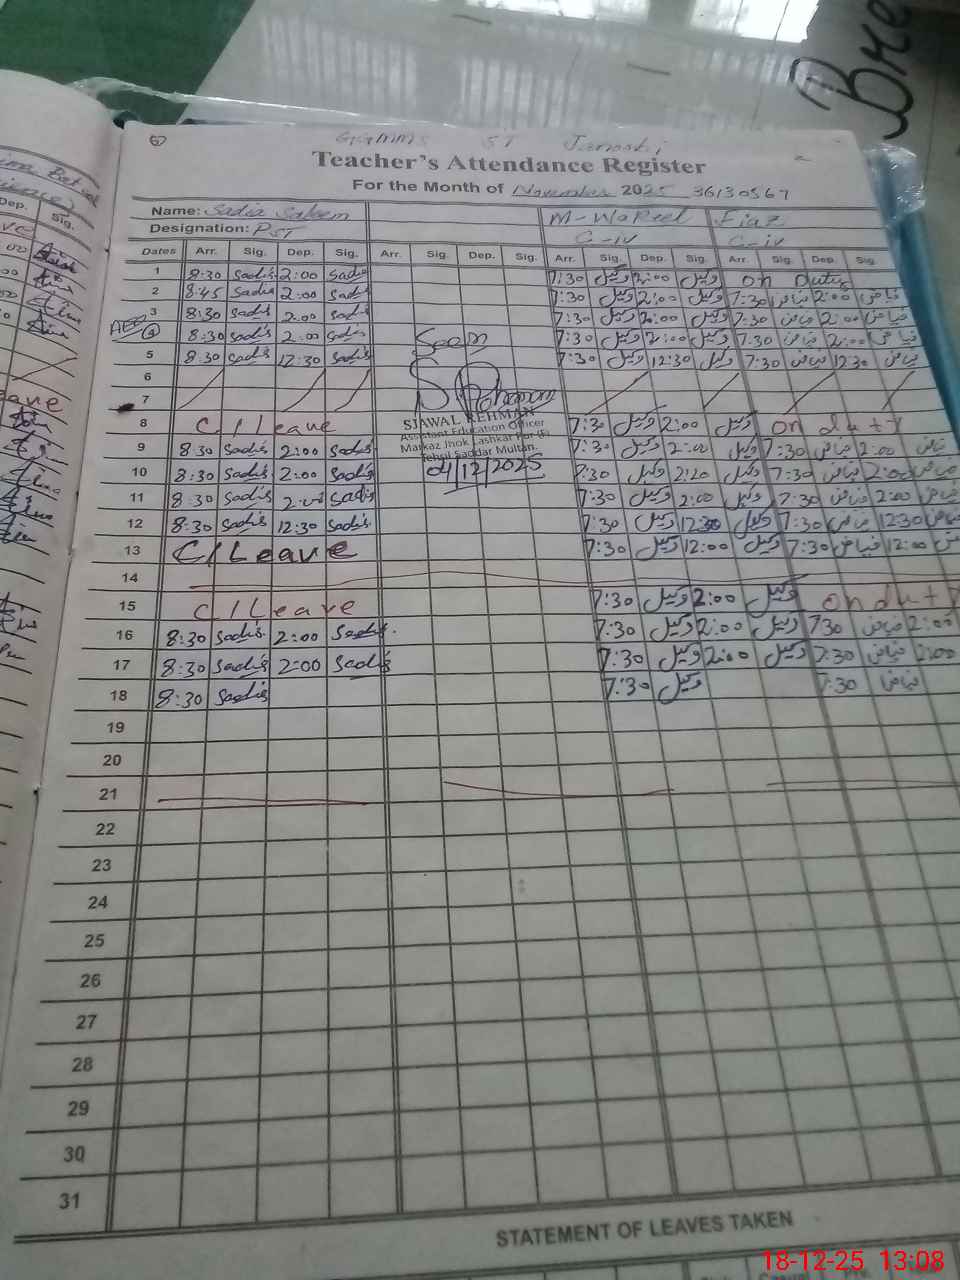 Teacher's Attendance Register
For the Month of November 2025 36130567
Name: Sadia Saleem M-Wakeel Fiaz
Designation: PST C-iv C-iv
Dates Arr. Sig. Dep. Sig. Arr. Sig. Dep. Sig. Arr. Sig. Dep. Sig. Arr. Sig. Dep. Sig.
1 8:30 Sadia 2:00 Sadia 7:30 وکیل 2:00 وکیل on duty
2 8:45 Sadia 2:00 Sadia 7:30 وکیل 2:00 وکیل 7:30 فیاض 2:00 فیاض
3 8:30 Sadia 2:00 Sadia 7:30 وکیل 2:00 وکیل 7:30 فیاض 2:00 فیاض
8:30 Sadia 2:00 Sadia Seen 7:30 وکیل 2:00 وکیل 7:30 فیاض 2:00 فیاض
5 8:30 Sadia 12:30 Sadia 7:30 وکیل 12:30 وکیل 7:30 فیاض 12:30 فیاض
6
7
SJAWAL REHMAN
Assistant Education Officer
Markaz Jhok Lashkar Pur (F)
Tehsil Saddar Multan.
04/12/2025
8 C/Leave 7:30 وکیل 2:00 وکیل on duty
9 8:30 Sadia 2:00 Sadia 7:30 وکیل 2:00 وکیل 7:30 فیاض 2:00 فیاض
10 8:30 Sadia 2:00 Sadia 7:30 وکیل وکیل 7:30 فیاض 2:00 فیاض
11 8:30 Sadia 2:00 Sadia 7:30 وکیل 2:00 وکیل 7:30 فیاض 2:00 فیاض
12 8:30 Sadia 12:30 Sadia 7:30 وکیل 12:30 وکیل 7:30 فیاض 12:30 فیاض
13 C/Leave 7:30 وکیل 12:00 وکیل 7:30 فیاض 12:00
14
15 C/Leave 7:30 وکیل 2:00 وکیل on duty
16 8:30 Sadia 2:00 Sadia 7:30 وکیل 2:00 وکیل 7:30 فیاض 2:00
17 8:30 Sadia 2:00 Sadia 7:30 وکیل 2:00 وکیل 7:30 فیاض 2:00
18 8:30 Sadia 7:30 وکیل 7:30 فیاض
19
20
21
22
23
24
25
26
27
28
29
30
31
STATEMENT OF LEAVES TAKEN
18-12-25 13:08